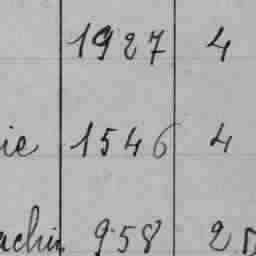 1927 4
ie 1546 4
achin 958 2